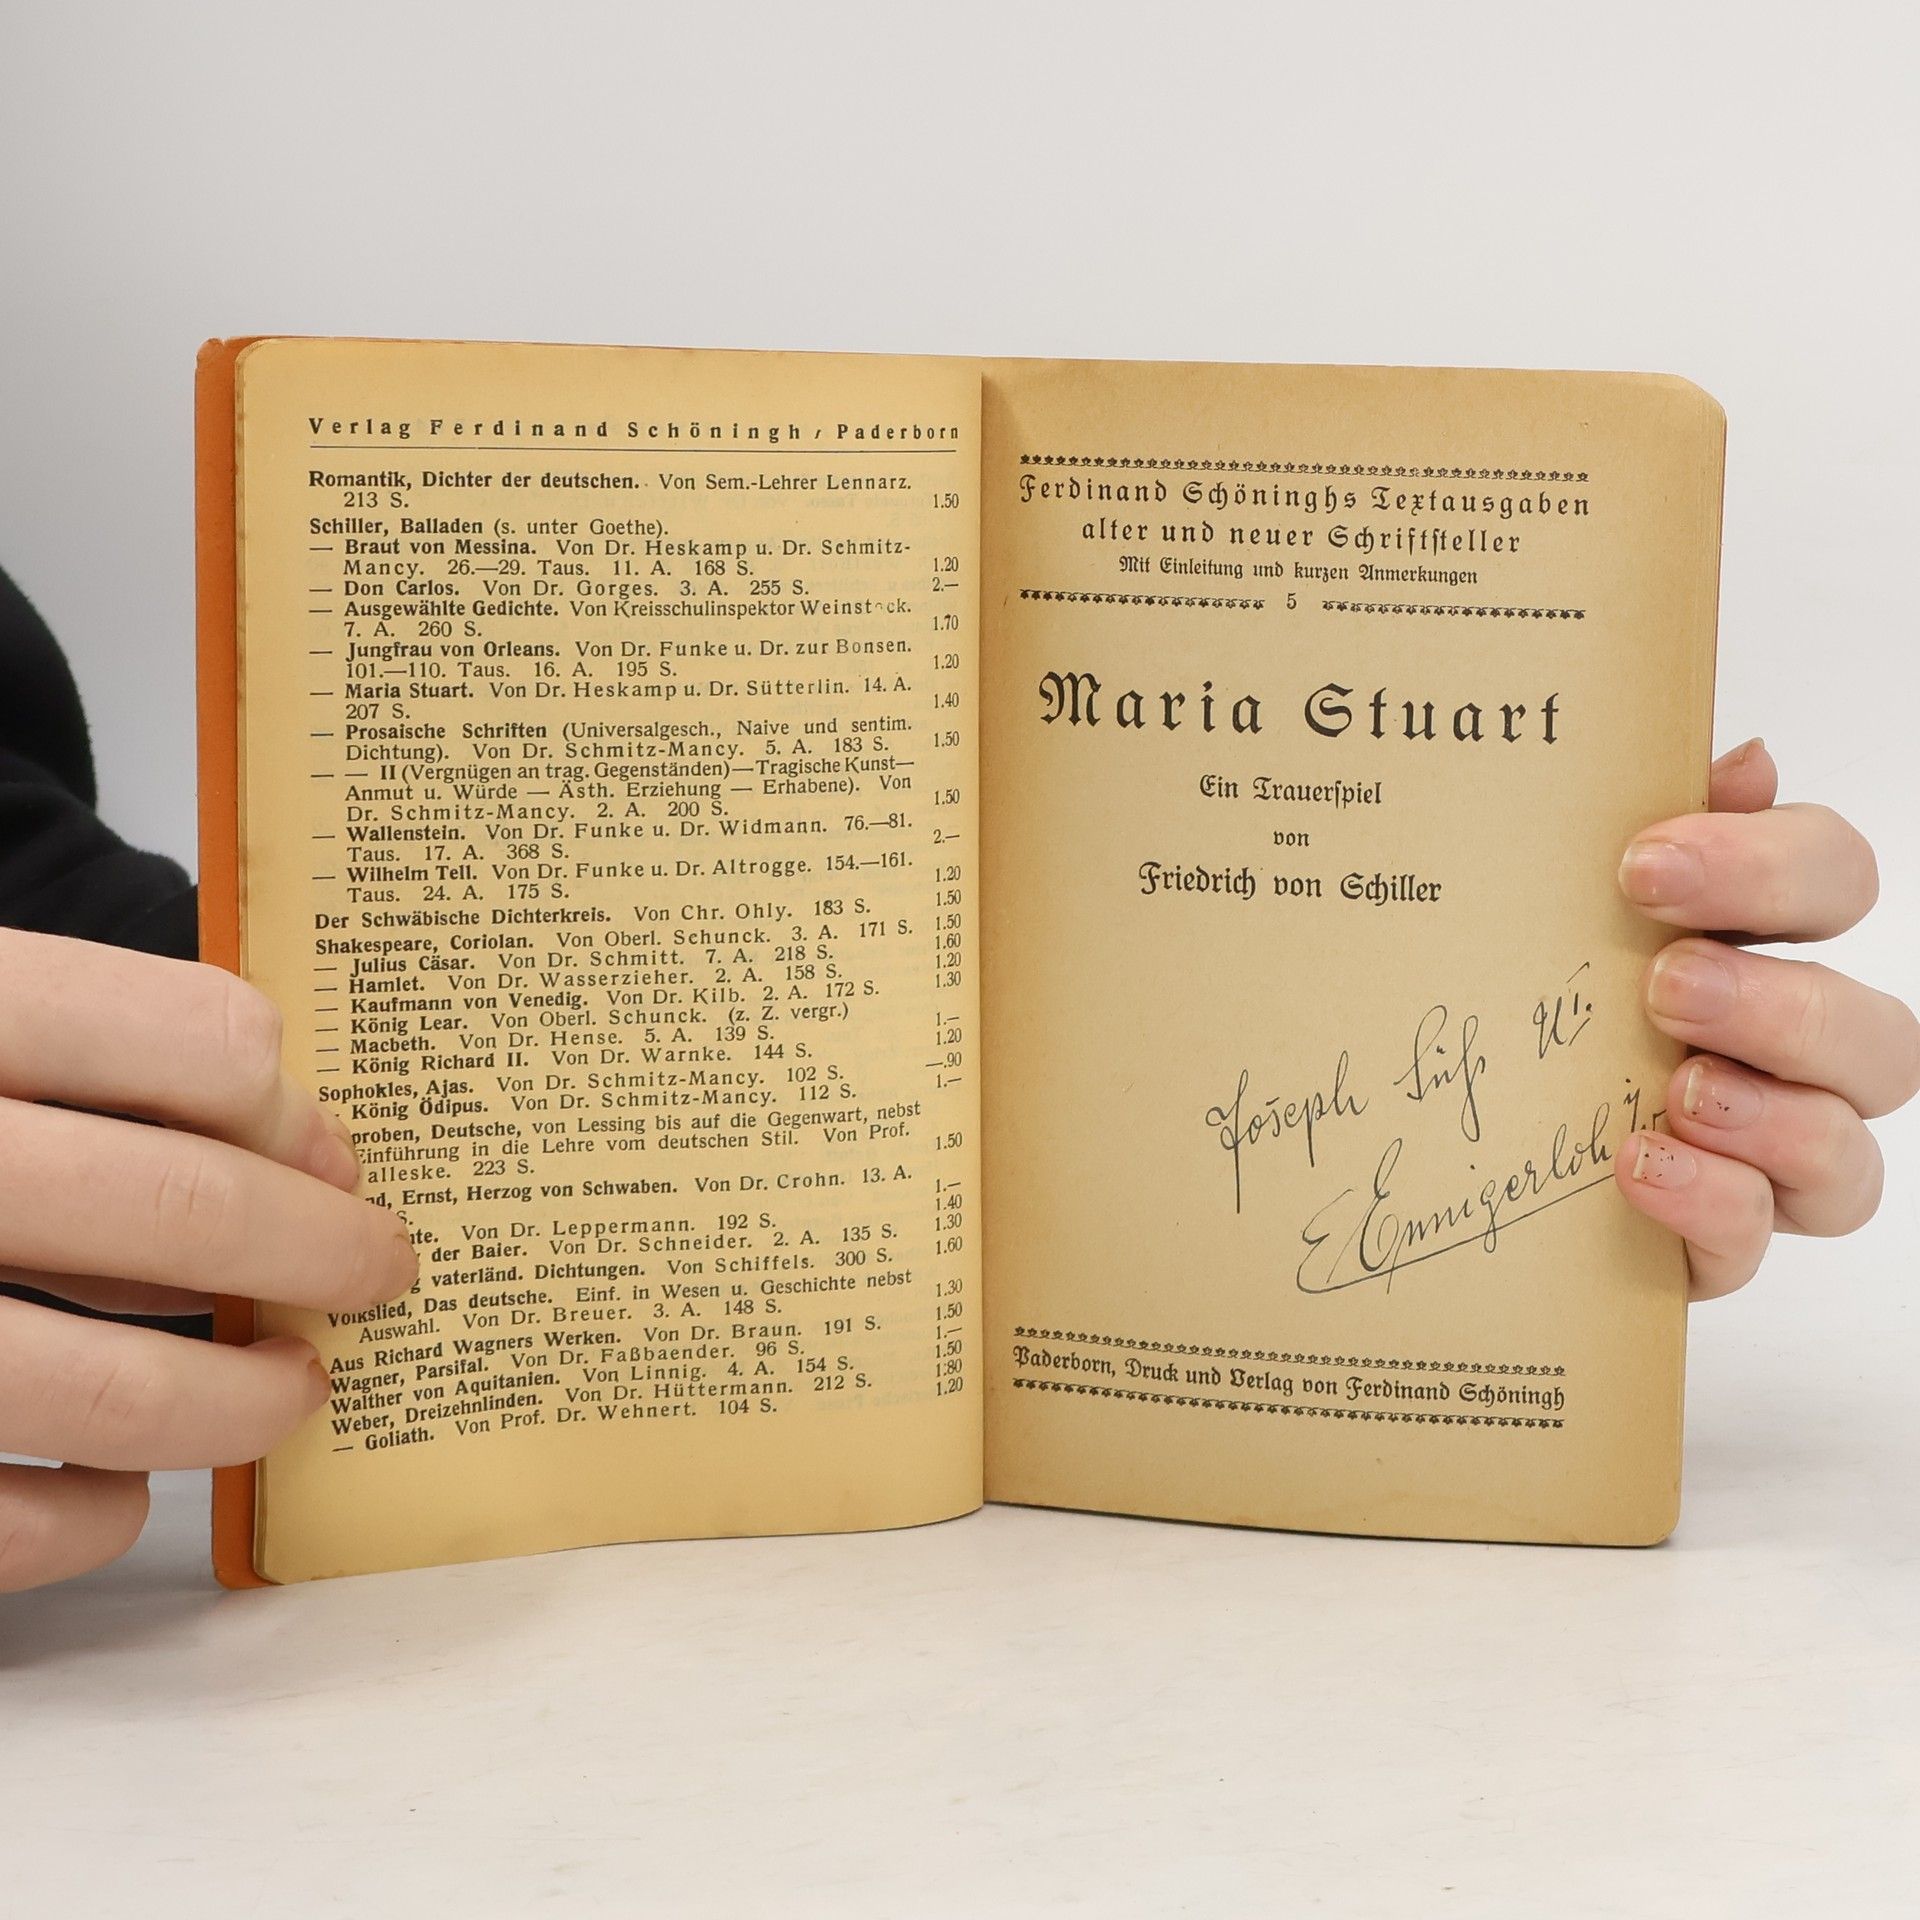 Verlag Ferdinand Schöningh / Paderborn
Romantik, Dichter der deutschen. Von Sem.-Lehrer Lennarz.
213 S. 1.50
Schiller, Balladen (s. unter Goethe).
— Braut von Messina. Von Dr. Heskamp u. Dr. Schmitz-
Mancy. 26.—29. Taus. 11. A. 168 S. 1.20
— Don Carlos. Von Dr. Gorges. 3. A. 255 S. 2.—
— Ausgewählte Gedichte. Von Kreisschulinspektor Weinstock.
7. A. 260 S. 1.70
— Jungfrau von Orleans. Von Dr. Funke u. Dr. zur Bonsen.
101.—110. Taus. 16. A. 195 S. 1.20
— Maria Stuart. Von Dr. Heskamp u. Dr. Sütterlin. 14. A.
207 S. 1.40
— Prosaische Schriften (Universalgesch., Naive und sentim.
Dichtung). Von Dr. Schmitz-Mancy. 5. A. 183 S. 1.50
— — II (Vergnügen an trag. Gegenständen)—Tragische Kunst—
Anmut u. Würde — Ästh. Erziehung — Erhabene). Von
Dr. Schmitz-Mancy. 2. A. 200 S. 1.50
— Wallenstein. Von Dr. Funke u. Dr. Widmann. 76.—81.
Taus. 17. A. 368 S. 2.—
— Wilhelm Tell. Von Dr. Funke u. Dr. Altrogge. 154.—161.
Taus. 24. A. 175 S. 1.20
Der Schwäbische Dichterkreis. Von Chr. Ohly. 183 S. 1.50
Shakespeare, Coriolan. Von Oberl. Schunck. 3. A. 171 S. 1.50
— Julius Cäsar. Von Dr. Schmitt. 7. A. 218 S. 1.60
— Hamlet. Von Dr. Wasserzieher. 2. A. 158 S. 1.20
— Kaufmann von Venedig. Von Dr. Kilb. 2. A. 172 S. 1.30
— König Lear. Von Oberl. Schunck. (z. Z. vergr.)
— Macbeth. Von Dr. Hense. 5. A. 139 S. 1.—
— König Richard II. Von Dr. Warnke. 144 S. 1.20
Sophokles, Ajas. Von Dr. Schmitz-Mancy. 102 S. —.90
— König Ödipus. Von Dr. Schmitz-Mancy. 112 S. 1.—
proben, Deutsche, von Lessing bis auf die Gegenwart, nebst
Einführung in die Lehre vom deutschen Stil. Von Prof.
alleske. 223 S. 1.50
nd, Ernst, Herzog von Schwaben. Von Dr. Crohn. 13. A.
S. 1.—
hte. Von Dr. Leppermann. 192 S. 1.40
der Baier. Von Dr. Schneider. 2. A. 135 S. 1.30
g vaterländ. Dichtungen. Von Schiffels. 300 S. 1.60
Volkslied, Das deutsche. Einf. in Wesen u. Geschichte nebst
Auswahl. Von Dr. Breuer. 3. A. 148 S. 1.30
Aus Richard Wagners Werken. Von Dr. Braun. 191 S. 1.50
Wagner, Parsifal. Von Dr. Faßbaender. 96 S. 1.—
Walther von Aquitanien. Von Linnig. 4. A. 154 S. 1.50
Weber, Dreizehnlinden. Von Dr. Hüttermann. 212 S. 1.80
— Goliath. Von Prof. Dr. Wehnert. 104 S. 1.20
Ferdinand Schöninghs Textausgaben
alter und neuer Schriftsteller
Mit Einleitung und kurzen Anmerkungen
5
Maria Stuart
Ein Trauerspiel
von
Friedrich von Schiller
Joseph Süß UI.
Ennigerloh i/
Paderborn, Druck und Verlag von Ferdinand Schöningh